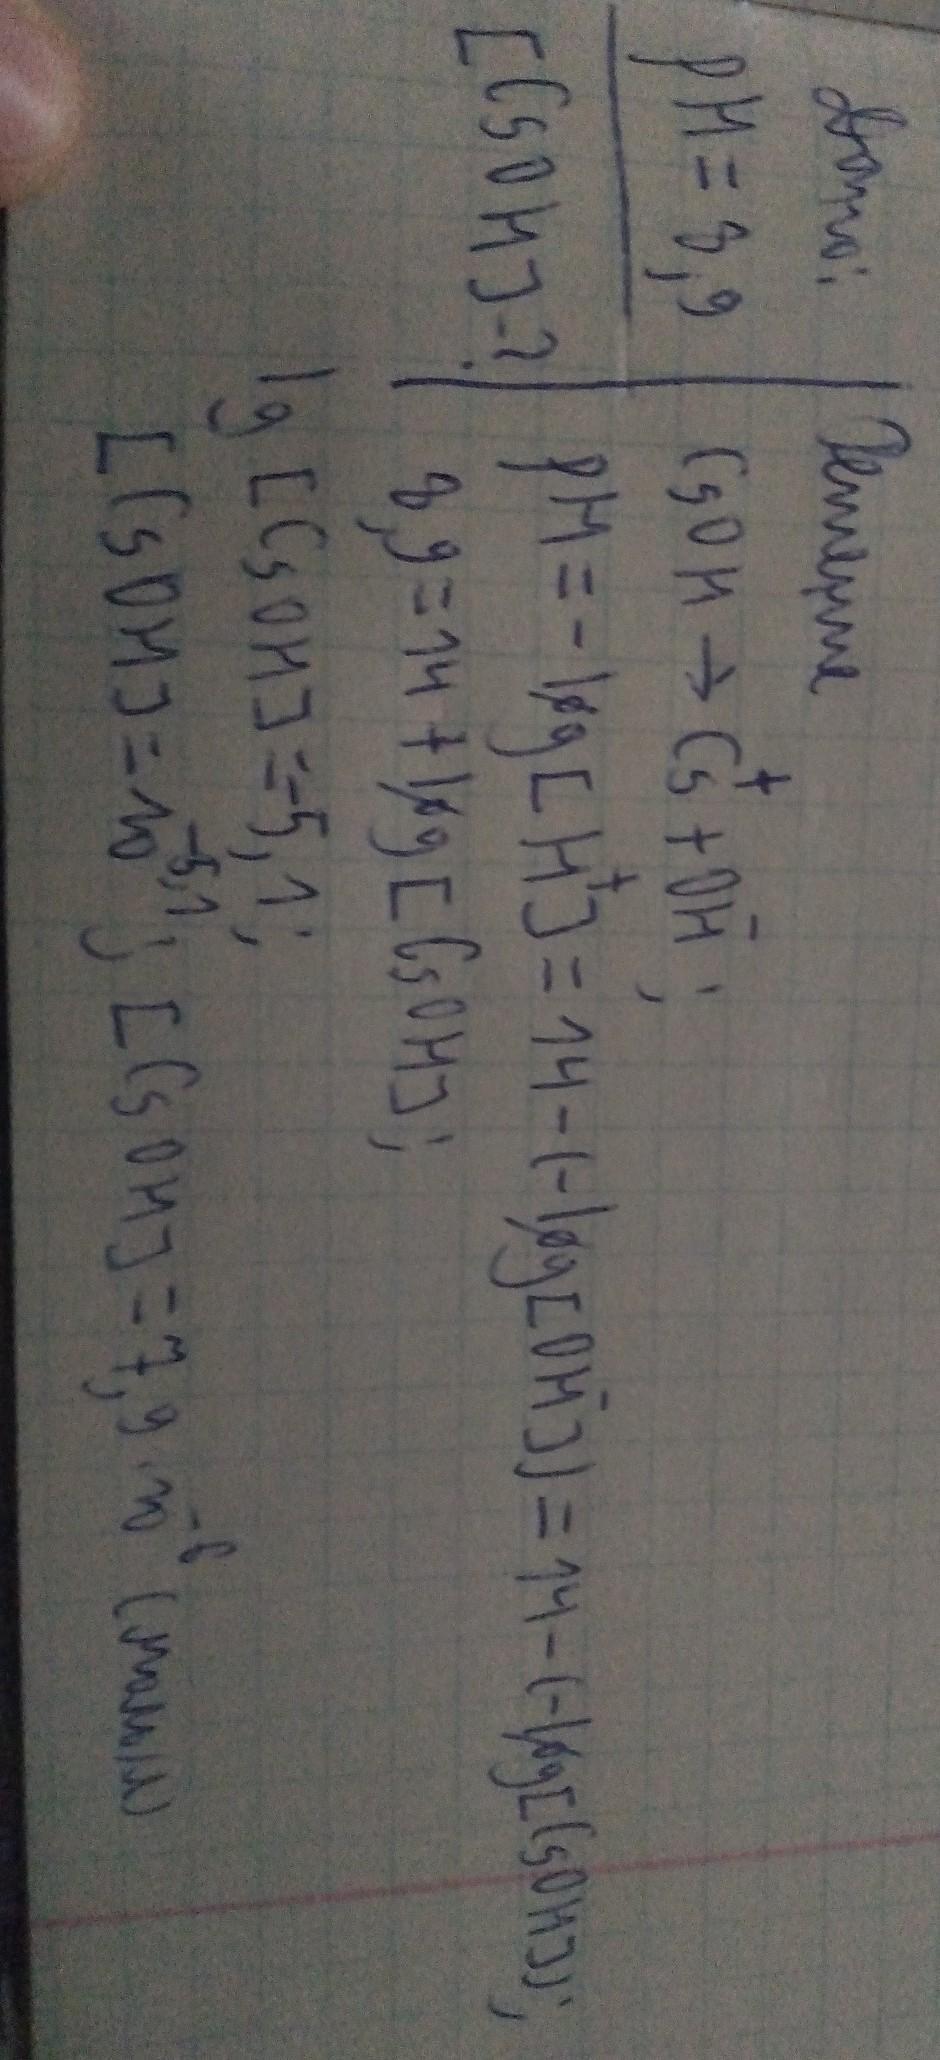 Дано:
pH = 8,9
[CsOH]-?
Решение
CsOH → Cs⁺ + OH⁻;
pH = -lg[H⁺] = 14-(-lg[OH⁻]) = 14-(-lg[CsOH]);
8,9 = 14 + lg[CsOH];
lg[CsOH] = -5,1;
[CsOH] = 10⁻⁵,¹; [CsOH] = 7,9·10⁻⁶ (моль/л)